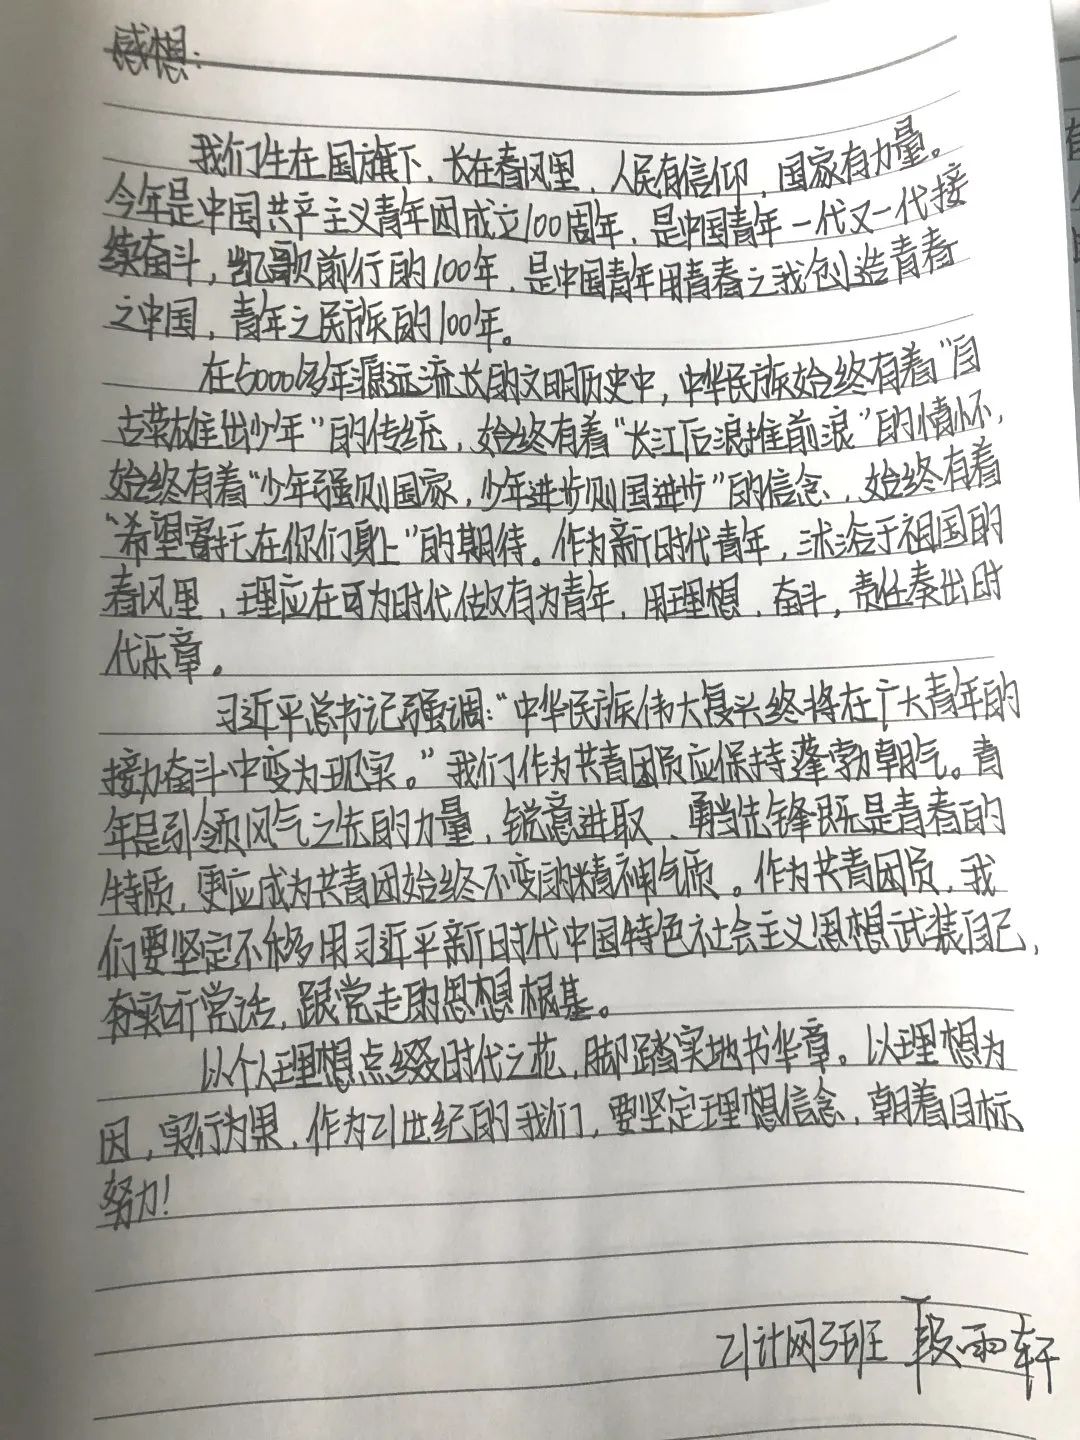 感想：
我们生在国旗下，长在春风里，人民有信仰，国家有力量。
今年是中国共产主义青年团成立100周年，是中国青年一代又一代接
续奋斗，凯歌前行的100年，是中国青年用青春之我创造青春
之中国，青年之民族的100年。
在5000多年源远流长的文明历史中，中华民族始终有着“自
古英雄出少年”的传统，始终有着“长江后浪推前浪”的情怀，
始终有着“少年强则国家，少年进步则国进步”的信念，始终有着
“希望寄托在你们身上”的期待。作为新时代青年，沐浴于祖国的
春风里，理应在可为时代做有为青年，用理想，奋斗，责任奏出时
代乐章。
习近平总书记强调：“中华民族伟大复兴终将在广大青年的
接力奋斗中变为现实。”我们作为共青团员应保持蓬勃朝气。青
年是引领风气之先的力量，锐意进取、勇当先锋既是青春的
特质，更应成为共青团始终不变的精神气质。作为共青团员，我
们要坚定不移用习近平新时代中国特色社会主义思想武装自己，
夯实听党话，跟党走的思想根基。
以个人理想点缀时代之花，脚踏实地书华章。以理想为
因，实行为果，作为21世纪的我们，要坚定理想信念，朝着目标
努力！
21计网3班 段雨轩